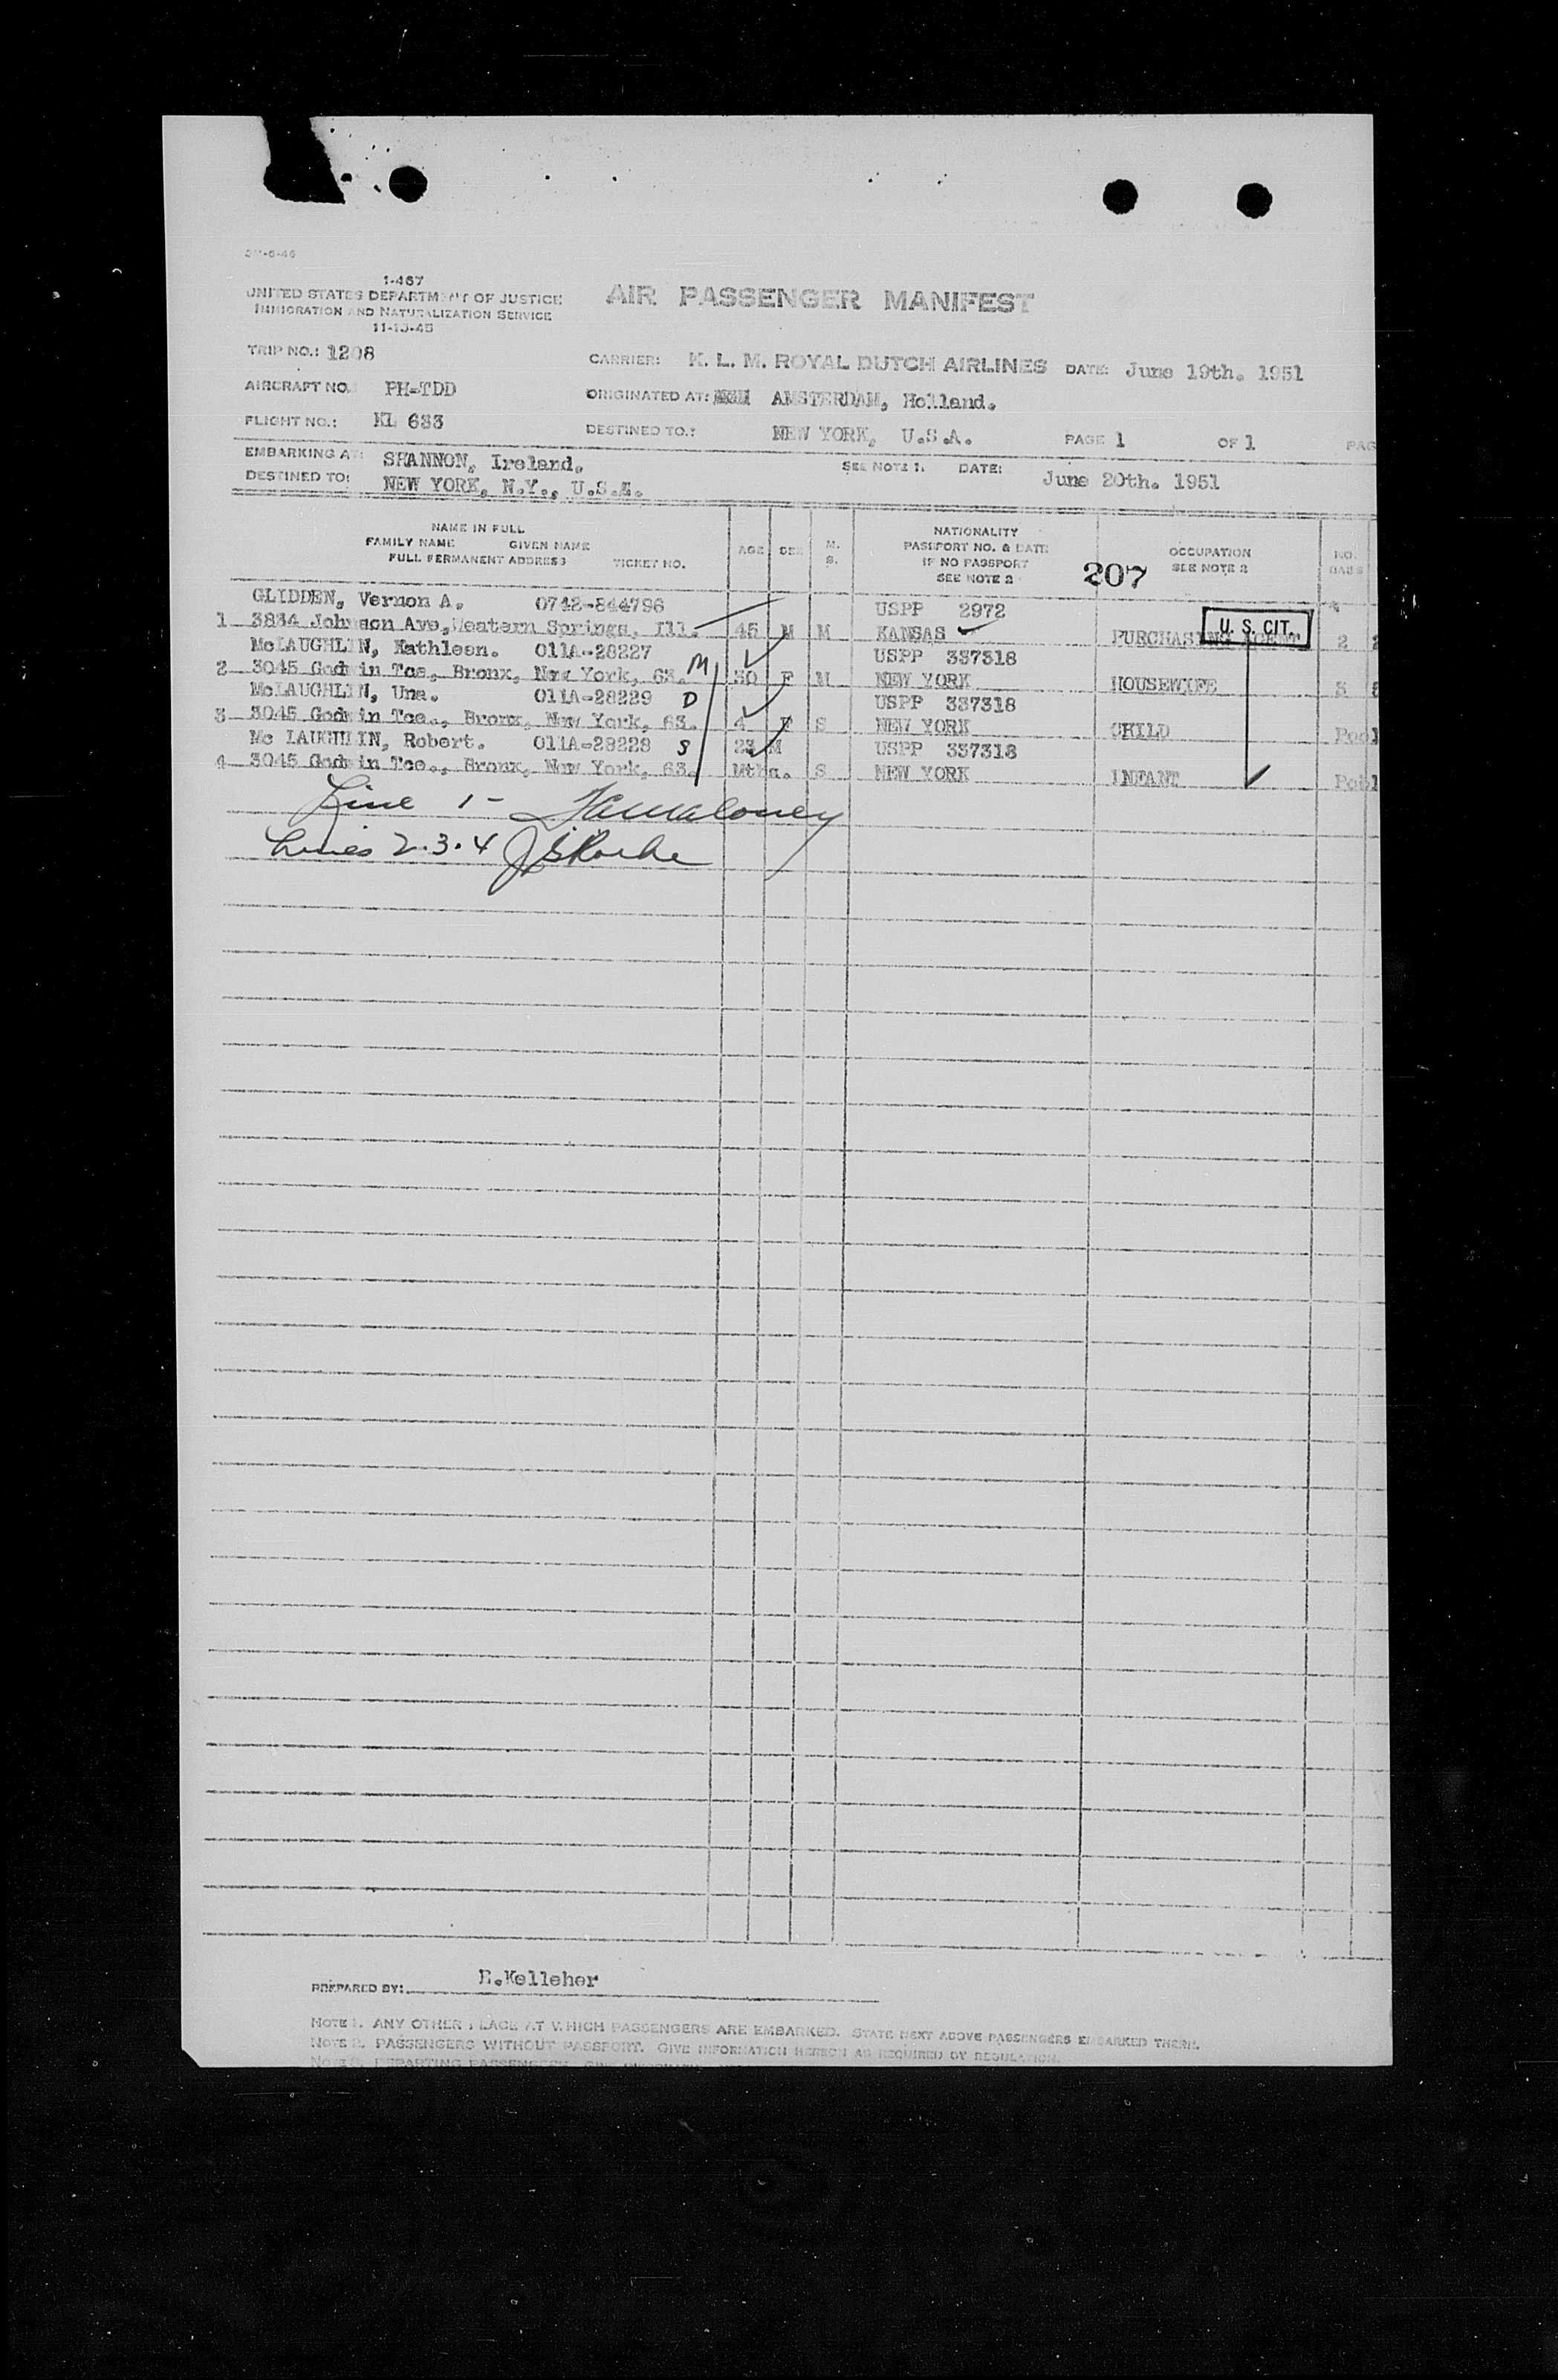 1-467
UNITED STATES DEPARTMENT OF JUSTICE
IMMIGRATION AND NATURALIZATION SERVICE
11-15-45
AIR PASSENGER MANIFEST
TRIP NO.: 1208
CARRIER: K. L. M. ROYAL DUTCH AIRLINES DATE: June 19th. 1951
AIRCRAFT NO. PH-TDD
ORIGINATED AT: AMSTERDAM, Holland.
FLIGHT NO.: KL 633
DESTINED TO.: NEW YORK, U.S.A. PAGE 1 OF 1 PAG
EMBARKING AT: SHANNON, Ireland. SEE NOTE 1. DATE: June 20th. 1951
DESTINED TO: NEW YORK, N.Y., U.S.A.
NAME IN FULL
FAMILY NAME GIVEN NAME
FULL PERMANENT ADDRESS TICKET NO.
AGE SEX M. S.
NATIONALITY
PASSPORT NO. & DATE
IF NO PASSPORT
SEE NOTE 2
207
OCCUPATION
SEE NOTE 2
NO. BAGS
GLIDDEN, Vernon A. 0742-844796 USPP 2972
1 3834 Johnson Ave, Western Springs, Ill. 45 M M KANSAS PURCHASING AGENT 2
U. S. CIT.
McLAUGHLIN, Kathleen. 011A-28227 USPP 337318
2 3045 Godwin Tce., Bronx, New York, 63. M 30 F M NEW YORK HOUSEWIFE 3
McLAUGHLIN, Una. 011A-28229 D USPP 337318
3 3045 Godwin Tce., Bronx, New York, 63. 4 F S NEW YORK CHILD Pool
Mc LAUGHLIN, Robert. 011A-28228 S 23 M USPP 337318
4 3045 Godwin Tce., Bronx, New York, 63. Mths. S NEW YORK INFANT Pool
Line 1 -
Lines 2.3.4
PREPARED BY: E.Kelleher
NOTE 1. ANY OTHER PLACE AT WHICH PASSENGERS ARE EMBARKED. STATE NEXT ABOVE PASSENGERS EMBARKED THERE.
NOTE 2. PASSENGERS WITHOUT PASSPORT. GIVE INFORMATION HEREON AS REQUIRED BY REGULATION.
DEPARTING PASSENGERS.